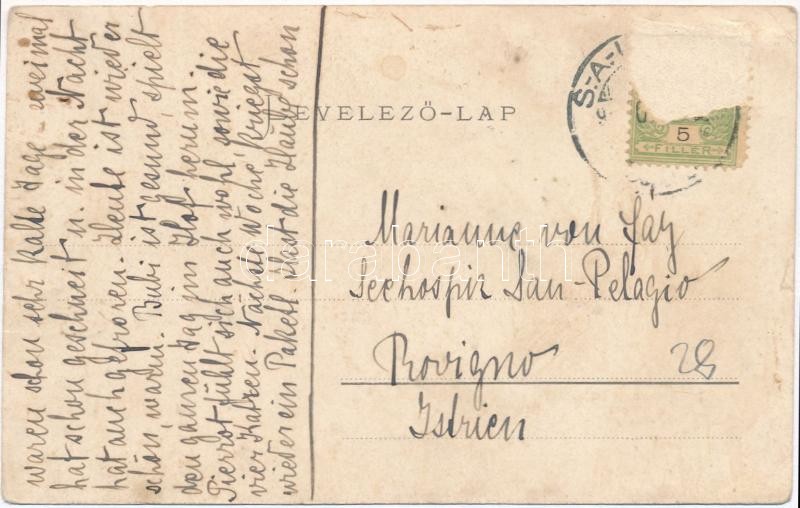 waren schon sehr kalte Tage – zweimal
hat schon geschneit u. in der Nacht
hat auch gefroren. Heute ist wieder
schön, warm. Bubi ist gesund, spielt
den ganzen Tag im Hof herum.
Pierrot fühlt sich auch wohl, sowie die
vier Katzen. Nächste Woche kriegst
wieder ein Paketl. Hast die Haube schon
LEVELEZŐ-LAP
S.-A.-
5
FILLER
Marianne von Fáy
Seehospiz San-Pelagio
Rovigno
28
Istrien
darabanth